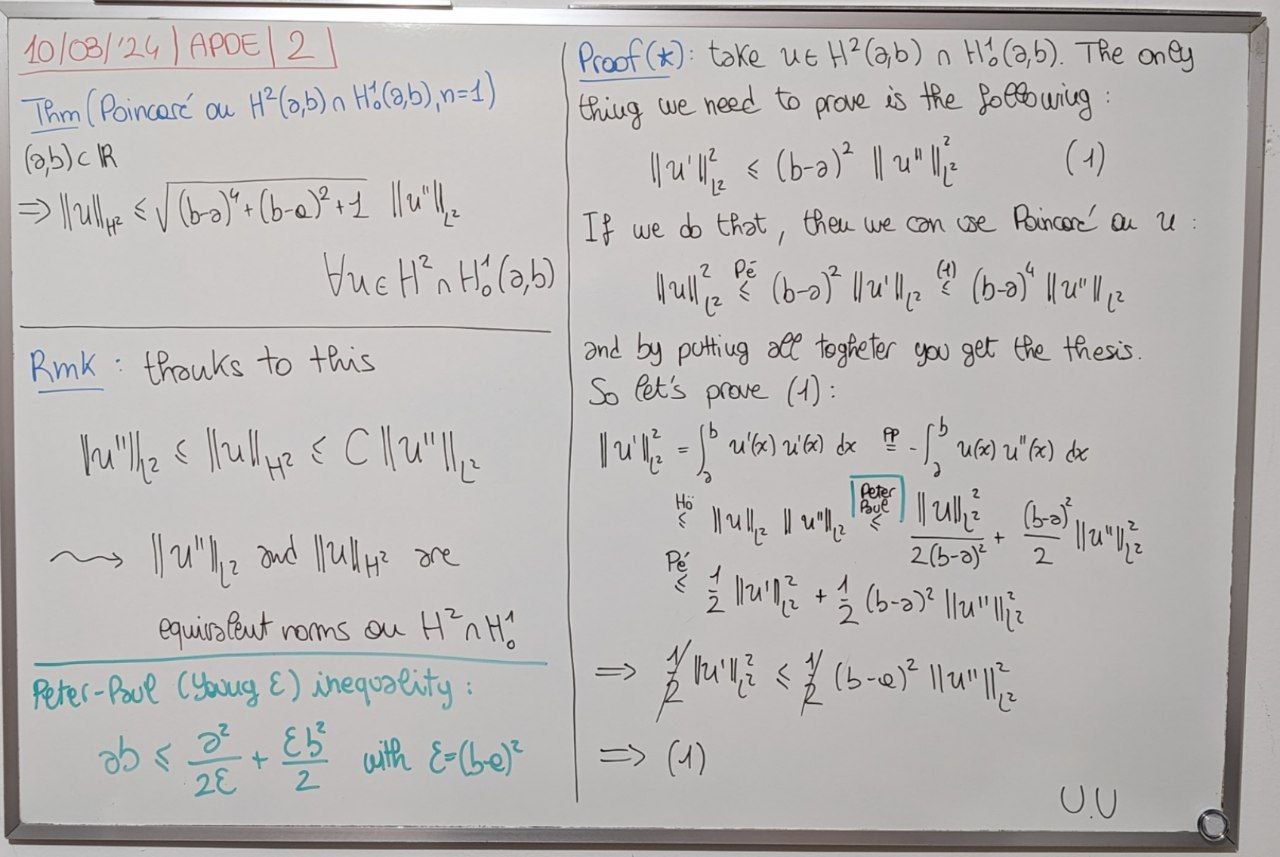 10/03/'24 | APDE | 2 |
Thm (Poincaré on H²(a,b) ∩ H₀¹(a,b), n=1)
(a,b) ⊂ ℝ
⇒ ||u||_H² ≤ √((b-a)⁴ + (b-a)² + 1) ||u''||_L²
∀u ∈ H² ∩ H₀¹(a,b)
Rmk : thanks to this
||u''||_L² ≤ ||u||_H² ≤ C ||u''||_L²
⇝ ||u''||_L² and ||u||_H² are
equivalent norms on H² ∩ H₀¹
Peter-Paul (Young ε) inequality :
ab ≤ a²/2ε + εb²/2 with ε=(b-a)²
Proof (*) : take u ∈ H²(a,b) ∩ H₀¹(a,b). The only
thing we need to prove is the following :
||u'||²_L² ≤ (b-a)² ||u''||²_L² (1)
If we do that, then we can use Poincaré on u :
||u||²_L² ≤^Pé (b-a)² ||u'||_L² ≤^(1) (b-a)⁴ ||u''||_L²
and by putting all togheter you get the thesis.
So let's prove (1) :
||u'||²_L² = ∫_a^b u'(x) u'(x) dx =^PP - ∫_a^b u(x) u''(x) dx
≤^Hö ||u||_L² ||u''||_L² ≤^Peter Paul ||u||²_L²/2(b-a)² + (b-a)²/2 ||u''||²_L²
≤^Pé 1/2 ||u'||²_L² + 1/2 (b-a)² ||u''||²_L²
⇒ 1/2 ||u'||²_L² ≤ 1/2 (b-a)² ||u''||²_L²
⇒ (1)
U.U